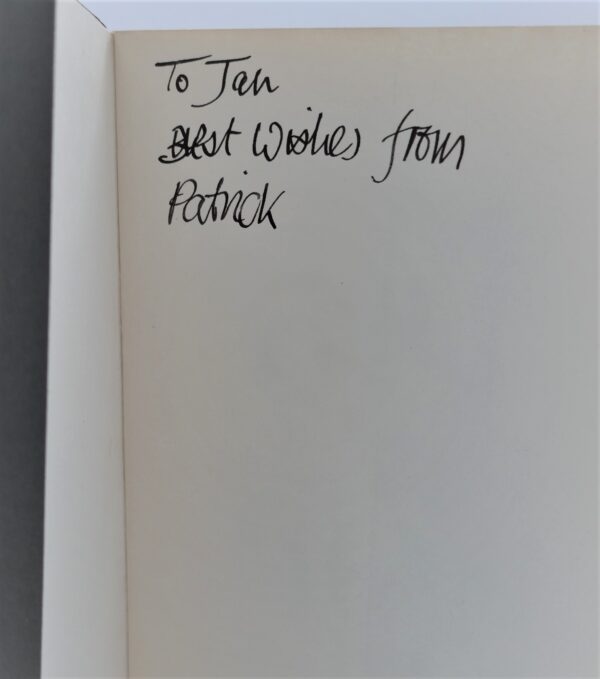 To Jan
Best Wishes from
Patrick